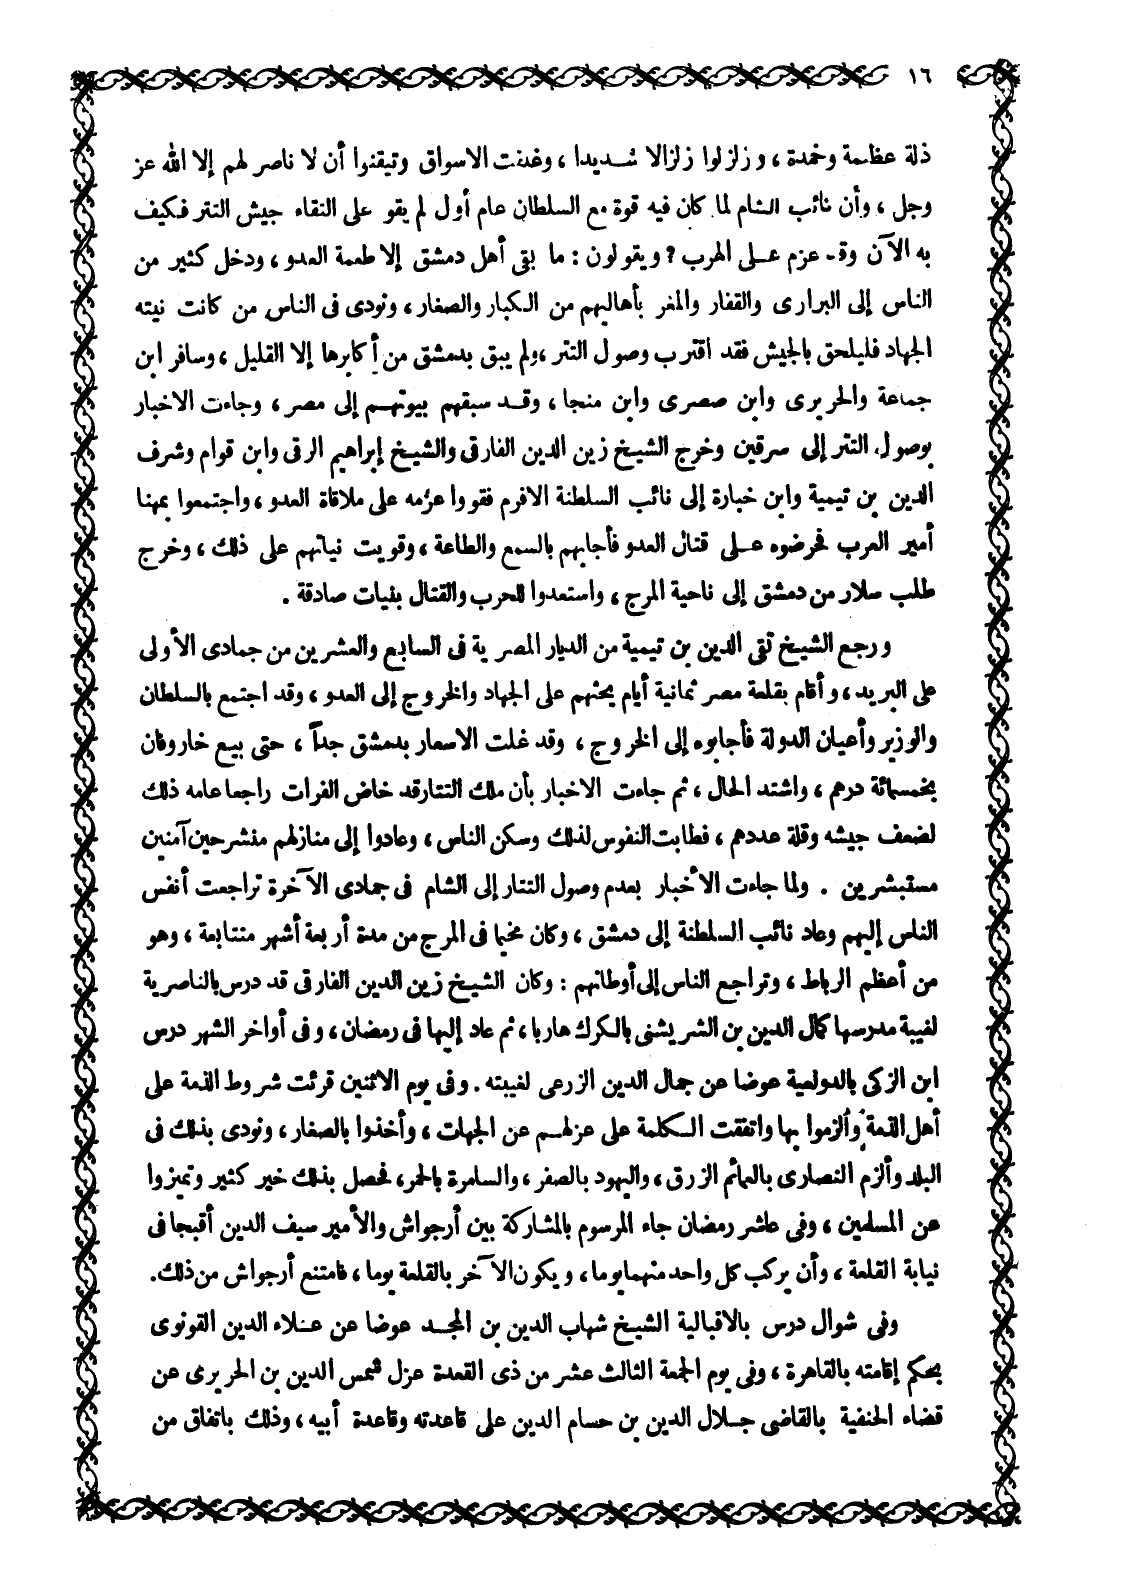 ١٦
ذلة عظيمة وخمدة ، وزلزلوا زلزالا شديدا ، وغلقت الاسواق وتيقنوا أن لا ناصر لهم إلا الله عز
وجل ، وأن نائب الشام لما كان فيه قوة مع السلطان عام أول لم يقو على التقاء جيش التتر فكيف
به الآن وقد عزم على الهرب ? ويقولون : ما بقى أهل دمشق إلا طعمة العدو ، ودخل كثير من
الناس إلى البرارى والقفار والمغر بأهاليهم من الكبار والصغار ، ونودى فى الناس من كانت نيته
الجهاد فليلحق بالجيش فقد اقترب وصول التتر ، ولم يبق بدمشق من أكابرها إلا القليل ، وسافر ابن
جماعة والحريرى وابن صصرى وابن منجا ، وقد سبقهم بيوتهم إلى مصر ، وجاءت الاخبار
بوصول التتر إلى سرقين وخرج الشيخ زين الدين الفارقى والشيخ إبراهيم الرقى وابن قوام وشرف
الدين بن تيمية وابن خبارة إلى نائب السلطنة الافرم فقووا عزمه على ملاقاة العدو ، واجتمعوا بمهنا
أمير العرب فحرضوه على قتال العدو فأجابهم بالسمع والطاعة ، وقويت نياتهم على ذلك ، وخرج
طلب سلار من دمشق إلى ناحية المرج ، واستعدوا للحرب والقتال بنيات صادقة .
ورجع الشيخ تقى الدين بن تيمية من الديار المصرية فى السابع والعشرين من جمادى الأولى
على البريد ، وأقام بقلعة مصر ثمانية أيام يحثهم على الجهاد والخروج إلى العدو ، وقد اجتمع بالسلطان
والوزير وأعيان الدولة فأجابوه إلى الخروج ، وقد غلت الاسعار بدمشق جداً ، حتى بيع خاروفان
بخمسمائة درهم ، واشتد الحال ، ثم جاءت الاخبار بأن ملك التتارقد خاض الفرات راجعا عامه ذلك
لضعف جيشه وقلة عددهم ، فطابت النفوس لذلك وسكن الناس ، وعادوا إلى منازلهم منشرحين آمنين
مستبشرين . ولما جاءت الأخبار بعدم وصول التتار إلى الشام فى جمادى الآخرة تراجعت أنفس
الناس إليهم وعاد نائب السلطنة إلى دمشق ، وكان مخيما فى المرج من مدة أربعة أشهر متتابعة ، وهو
من أعظم الرباط ، وتراجع الناس إلى أوطانهم : وكان الشيخ زين الدين الفارقى قد درس بالناصرية
لغيبة مدرسها كمال الدين بن الشريشنى بالكرك هاربا ، ثم عاد إليها فى رمضان ، وفى أواخر الشهر درس
ابن الزكى بالدولعية عوضا عن جمال الدين الزرعى لغيبته . وفى يوم الاثنين قرئت شروط الذمة على
أهل الذمة وألزموا بها واتفقت الكلمة على عزلهم عن الجهات ، وأخذوا بالصغار ، ونودى بذلك فى
البلد وألزم النصارى بالعمائم الزرق ، واليهود بالصفر ، والسامرة بالحمر، فحصل بذلك خير كثير وتميزوا
عن المسلمين ، وفى عاشر رمضان جاء المرسوم بالمشاركة بين أرجواش والأمير سيف الدين أقبجا فى
نيابة القلعة ، وأن يركب كل واحد منهما يوما ، ويكون الآخر بالقلعة يوما ، فامتنع أرجواش من ذلك.
وفى شوال درس بالاقبالية الشيخ شهاب الدين بن المجد عوضا عن علاء الدين القونوى
بحكم إقامته بالقاهرة ، وفى يوم الجمعة الثالث عشر من ذى القعدة عزل شمس الدين بن الحريرى عن
قضاء الحنفية بالقاضى جلال الدين بن حسام الدين على قاعدته وقاعدة أبيه ، وذلك باتفاق من